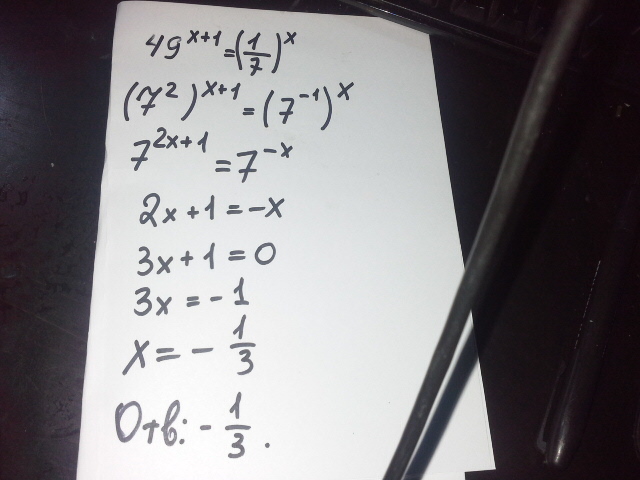 49^{x+1} = (1/7)^x
(7^2)^{x+1} = (7^{-1})^x
7^{2x+1} = 7^{-x}
2x+1 = -x
3x+1 = 0
3x = -1
x = - 1/3
Отв: - 1/3.